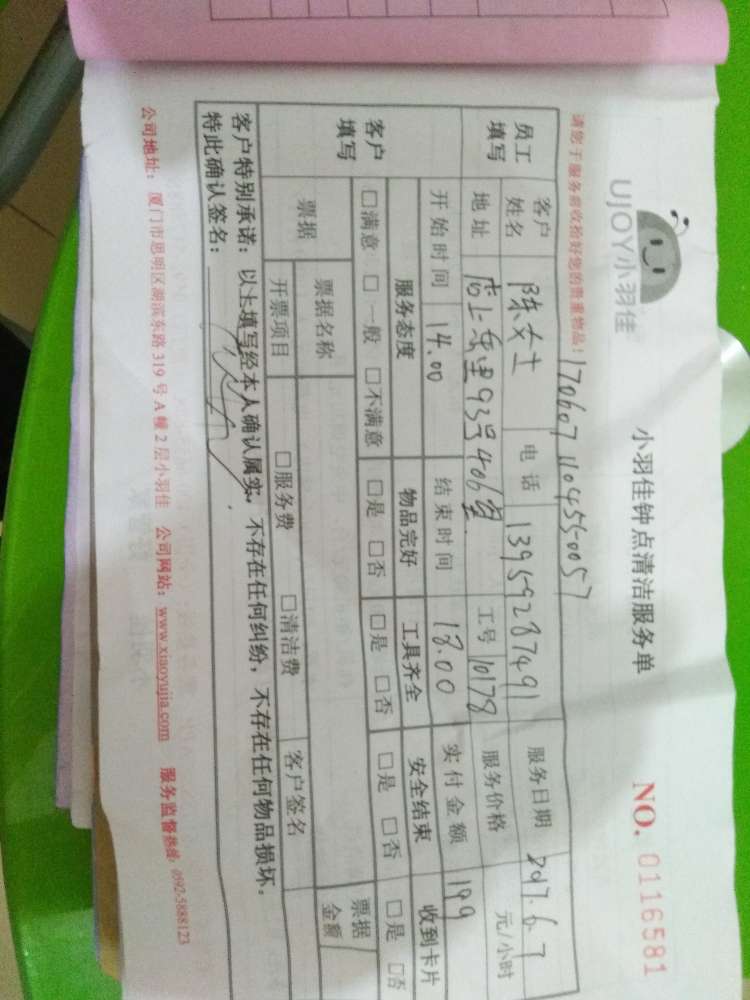 UJOY小羽佳
小羽佳钟点清洁服务单
NO. 0116581
请您于服务前收拾好您的贵重物品！
170607110455-0057
员工填写
客户姓名 陈女士 电话 13959287491 服务日期 2017.6.7
地址 尚上乐里93号406室 工号 10178 服务价格 元/小时
开始时间 14.00 结束时间 18.00 实付金额 199
客户填写
服务态度 物品完好 工具齐全 安全结束 收到卡片
□满意 □一般 □不满意 □是 □否 □是 □否 □是 □否 □是 □否
票据 票据名称 票据金额
开票项目 □服务费 □清洁费 客户签名
客户特别承诺：以上填写经本人确认属实，不存在任何纠纷，不存在任何物品损坏。
特此确认签名：
公司地址：厦门市思明区湖滨东路319号A幢2层小羽佳 公司网站：www.xiaoyujia.com 服务监督热线：0592-5888123